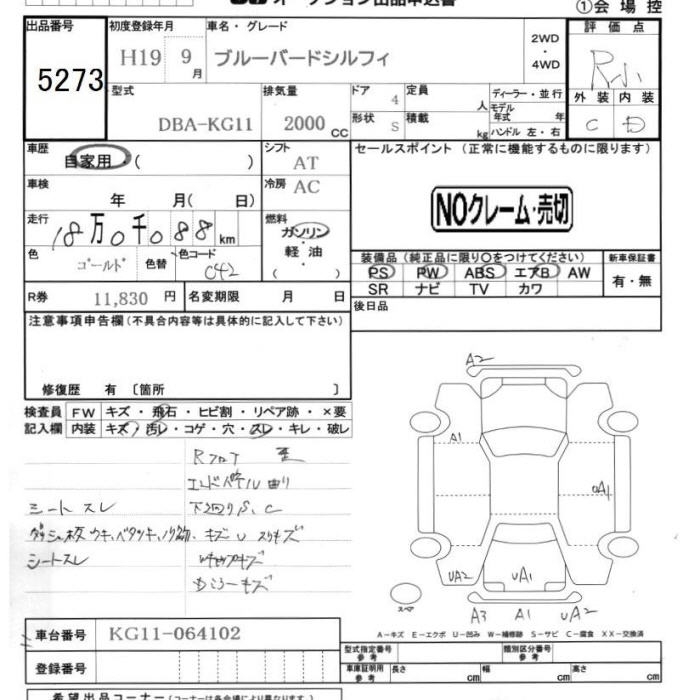 オークション出品申込書
①会場控
出品番号 初度登録年月 車名・グレード 評価点
5273 H19 9月 ブルーバードシルフィ 2WD・4WD R小
型式 排気量 ドア 4 定員 人 ディーラー・並行 外装 内装
DBA-KG11 2000 CC 形状 S 積載 kg モデル年式 年 ハンドル 左・右 C D
車歴 自家用・( ) シフト AT セールスポイント (正常に機能するものに限ります)
車検 年 月( 日) 冷房 AC
NOクレーム・売切
走行 18万0千088km 燃料 ガソリン・軽油( )
色 ゴールド 色替 色コード C42
装備品 (純正品に限り○をつけてください) 新車保証書
PS PW ABS エアB AW 有・無
SR ナビ TV カワ
R券 11,830 円 名変期限 月 日 後日品
注意事項申告欄(不具合内容等は具体的に記入して下さい)
修復歴 有 〔箇所 〕
検査員 FW キズ・飛石・ヒビ割・リペア跡・×要
記入欄 内装 キズ・汚レ・コゲ・穴・スレ・キレ・破レ
Rフロア 歪
エンドパネル曲り
シートスレ 下回りS、C
シートスレ
A2
A1
UA1
UA2 UA1
スペア
A3 A1 UA2
A−キズ E−エクボ U−凹み W−補修跡 S−サビ C−腐食 XX−交換済
車台番号 KG11-064102
型式指定番号 類別区分番号
登録番号 車庫証明用参考 長さ cm 幅 cm 高さ cm
希望出品コーナー(コーナーは各会場により異なります)